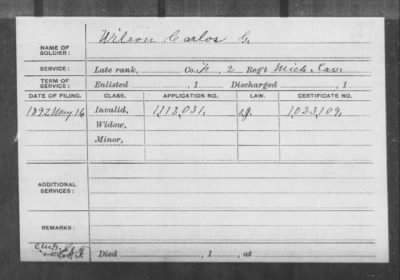 NAME OF SOLDIER: Wilson Carlos G.
SERVICE: Late rank, Co. F, 2 Reg't Mich. Cav.
TERM OF SERVICE: Enlisted , 1 Discharged , 1
DATE OF FILING. CLASS. APPLICATION NO. LAW. CERTIFICATE NO.
1892 May 16 Invalid, 1,113,031. 1,023,109.
Widow,
Minor,
ADDITIONAL SERVICES:
REMARKS:
Died , 1 , at